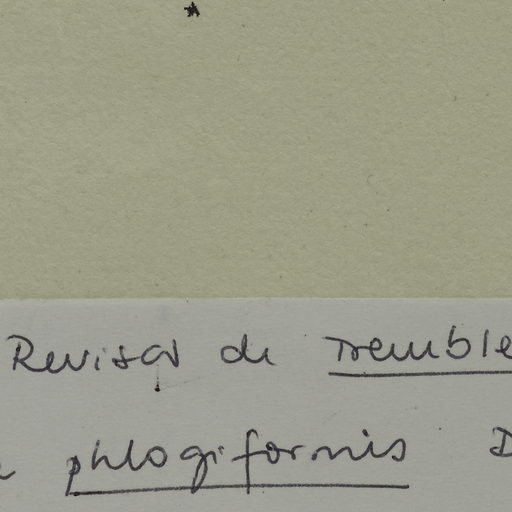 Revisar de Tremble
phlogiformis D